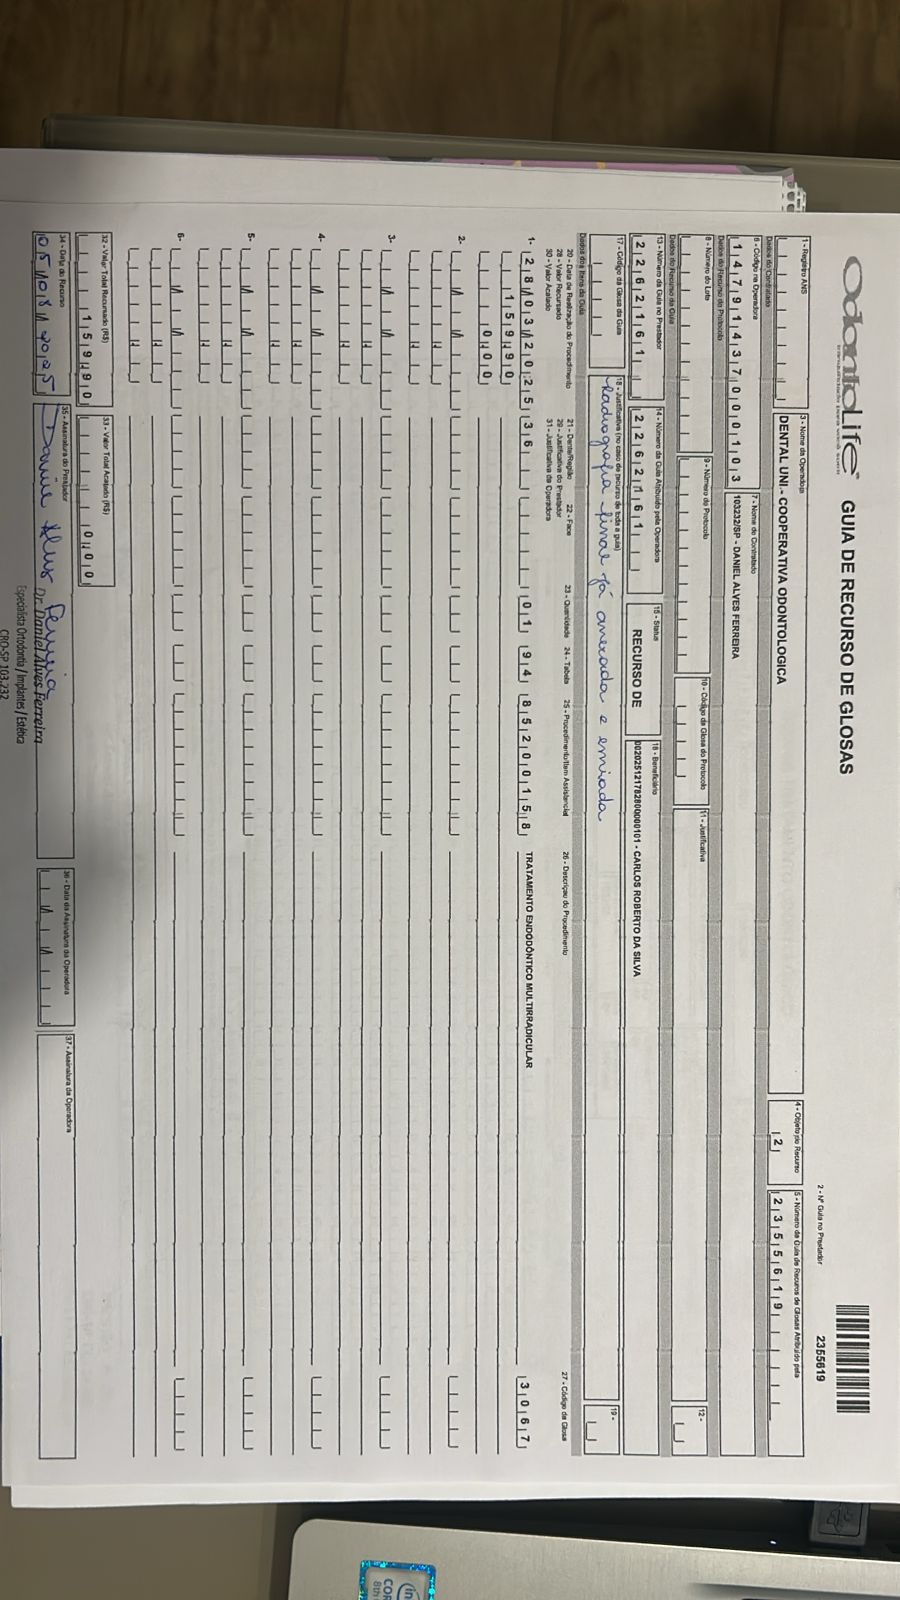 OdontoLife
GUIA DE RECURSO DE GLOSAS
2 - Nº Guia no Prestador
2355619
1 - Registro ANS
3 - Nome da Operadora
DENTAL UNI.- COOPERATIVA ODONTOLOGICA
4 - Objeto do Recurso
2
5 - Número da Guia de Recurso de Glosas Atribuído pela
2355619
Dados do Contratado
6 - Código na Operadora
14791437000103
7 - Nome do Contratado
103232/SP - DANIEL ALVES FERREIRA
Dados do Recurso do Protocolo
8 - Número do Lote
9 - Número do Protocolo
10 - Código da Glosa do Protocolo
11 - Justificativa
12 -
Dados do Recurso da Guia
13 - Número da Guia no Prestador
22262161
14 - Número da Guia Atribuído pela Operadora
22262161
15 - Status
RECURSO DE
16 - Beneficiário
00202512178280000101 - CARLOS ROBERTO DA SILVA
17 - Código da Glosa da Guia
18 - Justificativa (no caso de recurso de toda a guia)
Radiografia final já anexada e enviada
19 -
Dados dos Itens da Guia
20 - Data de Realização do Procedimento
21 - Dente/Região
22 - Face
23 - Quantidade
24 - Tabela
25 - Procedimento/Item Assistencial
26 - Descrição do Procedimento
27 - Código da Glosa
28 - Valor Recursado
29 - Justificativa do Prestador
30 - Valor Acatado
31 - Justificativa da Operadora
1- 28/03/2025 36 01 94 85200158 TRATAMENTO ENDODÔNTICO MULTIRRADICULAR 3067
159,90
0,00
2-
3-
4-
5-
6-
32 - Valor Total Recursado (R$)
159,90
33 - Valor Total Acatado (R$)
0,00
34 - Data do Recurso
05/08/2025
35 - Assinatura do Prestador
Daniel Alves Ferreira
Dr. Daniel Alves Ferreira
Especialista Ortodontia / Implantes / Estética
CRO-SP 103.232
36 - Data da Assinatura da Operadora
37 - Assinatura da Operadora